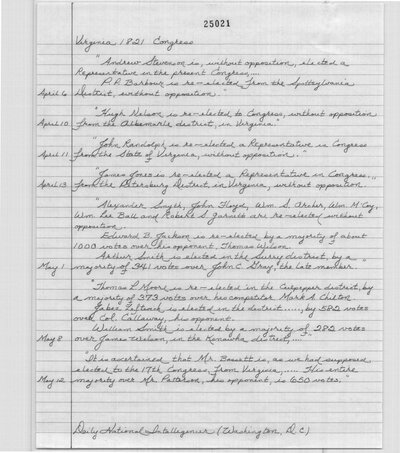 25021
Virginia 1821 Congress
"Andrew Stevenson is, without opposition, elected a
Representative in the present Congress,....
P.P. Barbour is re-elected from the Spottsylvania
April 6 District, without opposition."
"Hugh Nelson is re-elected to Congress, without opposition
April 10 from the Albemarle district, in Virginia."
"John Randolph is re-elected a Representative in Congress
April 11 from the State of Virginia, without opposition."
"James Jones is re-elected a Representative in Congress
April 13 from the Petersburg District, in Virginia, without opposition."
"Alexander Smyth, John Floyd, Wm. S. Archer, Wm. McCoy,
Wm. Lee Ball and Robert S. Garnett are re-elected without
opposition.
Edward B. Jackson is re-elected by a majority of about
1000 votes over his opponent, Thomas Wilson
Arthur Smith is elected in the Surry district, by a
May 1 majority of 341 votes over John C. Gray, the late member."
"Thomas L Moore is re-elected in the Culpepper district, by
a majority of 373 votes over his competitor Mark A. Chilton.
Jabez Leftwich is elected in the district ....., by 582 votes
over Col. Callaway, his opponent.
William Smith is elected by a majority of 282 votes
May 8 over James Wilson, in the Kanawha district, ...."
"It is ascertained that Mr. Bassett is, as we had supposed
elected to the 17th Congress, from Virginia, .... His entire
May 12 majority over Mr. Patterson, his opponent, is 650 votes."
Daily National Intelligencer (Washington, D.C.)